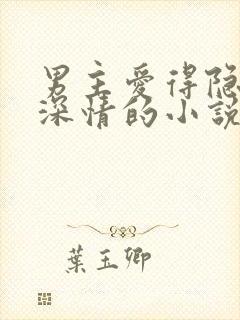 男主爱得隐
深情的小説
葉玉卿